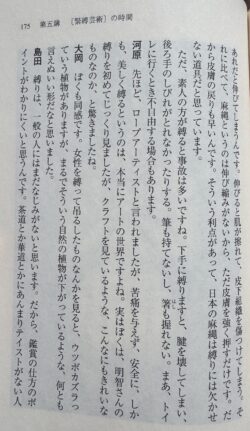 175 第五講 「緊縛芸術」の時間
あれだと伸びてしまうんです。伸びると肌が擦れて、皮下組織を傷つけてしまう。そ
れに比べて、麻縄というのは伸び縮みがないから、ただ皮膚を強く押すだけです。だ
から皮膚の戻りも早いんです。そういう利点があって、日本の麻縄は縛りには欠かせ
ない道具だと思っています。
ただ、素人の方が縛ると事故は多いですね。下手に縛りますと、腱を壊してしまい、
後ろ手のしびれがとれなかったりする。筆も持てないし、箸も握れない。まあ、トイ
レに行くとき不自由する場合もあります。
河原 先ほど、ロープアーティストと言われましたが、苦痛を与えず、安全に、しか
も、美しく縛るというのは、本当にアートの世界ですよね。実はぼくは、明智さんの
縛りを初めてじっくり見ましたが、クラフトを見ているような、こんなにもきれいな
ものなのか、と驚きましたね。
大岡 ぼくも同感です。女性を縛って吊るしたものなんかを見ると、ウツボカズラっ
ていう植物がありますが、まるでそういう自然の植物が下がっているような、何とも
言えぬ感じがしたんですよ。
島田 縛りは、一般の人にはまだなじみがないと思います。だから、鑑賞の仕方のポ
イントがわかりにくいと思うんです。茶道とか華道とかにあんまりテイストがない人